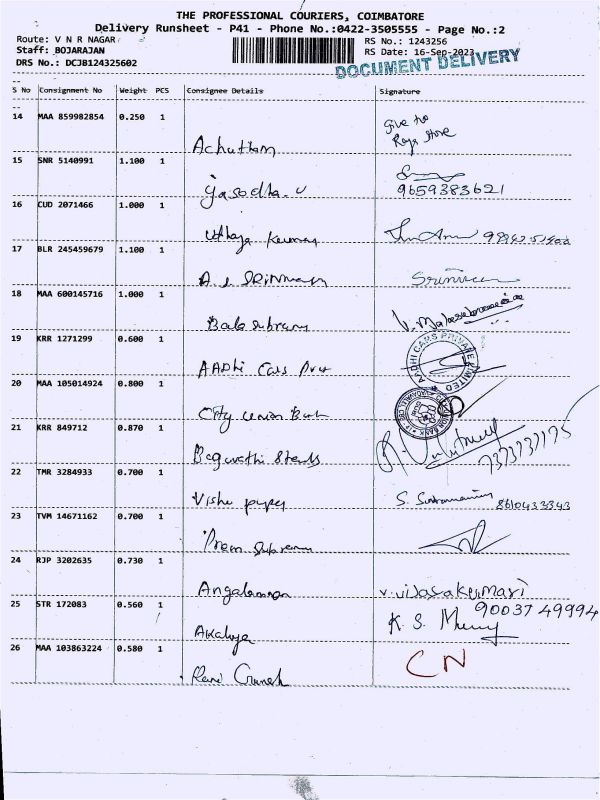 THE PROFESSIONAL COURIERS, COIMBATORE
Delivery Runsheet - P41 - Phone No.:0422-3505555 - Page No.:2
Route: V N R NAGAR
RS No.: 1243256
Staff: BOJARAJAN
RS Date: 16-Sep-2023
DRS No.: DCJB124325602
DOCUMENT DELIVERY
S No Consignment No Weight PCS Consignee Details Signature
14 MAA 859982854 0.250 1
Give to
Achuttam
Raja Store
15 SNR 5140991 1.100 1
Yasodha.V 9659383621
16 CUD 2071466 1.000 1
Uthaya Kumar
17 BLR 245459679 1.100 1
A.S. Srinivasan Srinivasan
18 MAA 600145716 1.000 1
Balasubramani V. Malasubramanian
19 KRR 1271299 0.600 1
AADhi Cars Pvt
AADHI CARS PRIVATE LIMITED
20 MAA 105014924 0.800 1
City Union Bank
21 KRR 849712 0.870 1
Bagavathi Steels 7373737175
22 TMR 3284933 0.700 1
Vishu paper S. Subramaniam 8610433343
23 TVM 14671162 0.700 1
Prem
24 RJP 3202635 0.730 1
Angalamman V. Vijayakumari
25 STR 172083 0.560 1
90037 49994
Akalya K. S.
26 MAA 103863224 0.580 1
CN
Ravi Ganesh